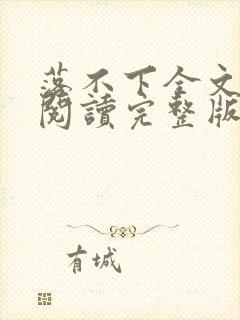 落不下全文
閱讀完整版
有城